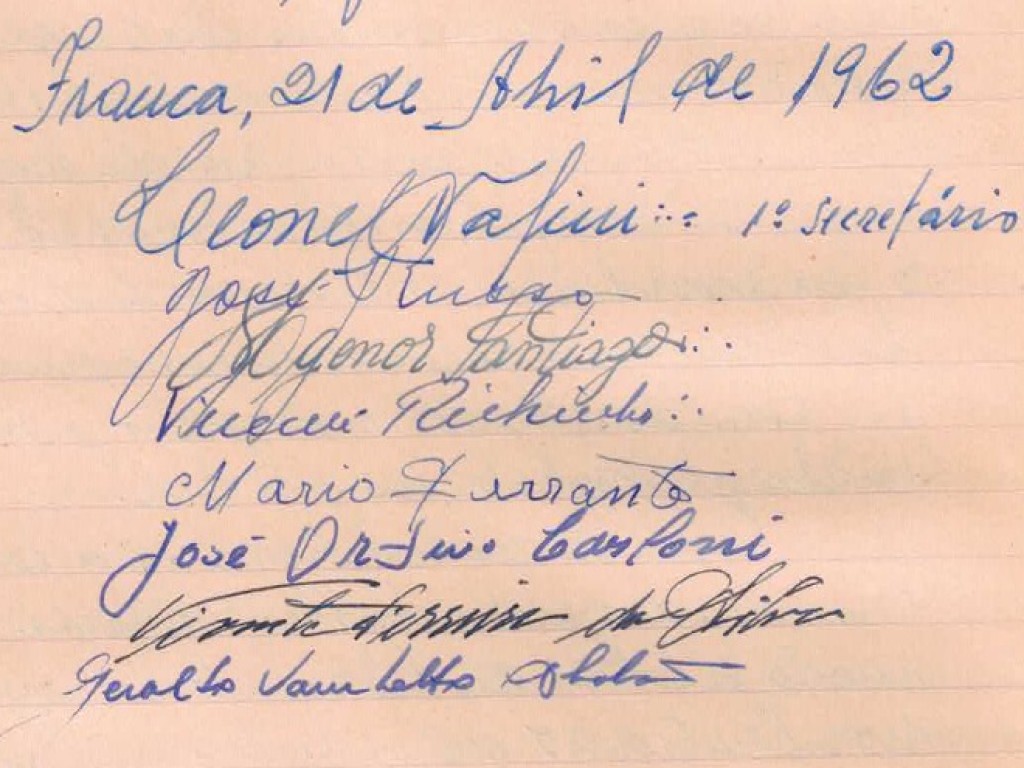 Franca, 21 de Abril de 1962
Leonel Nalini 1º secretário
José Russo
Agonor Santiago
Vicente Richinho
Mario Ferrante
José
Vicente Ferreira da Silva
Geraldo